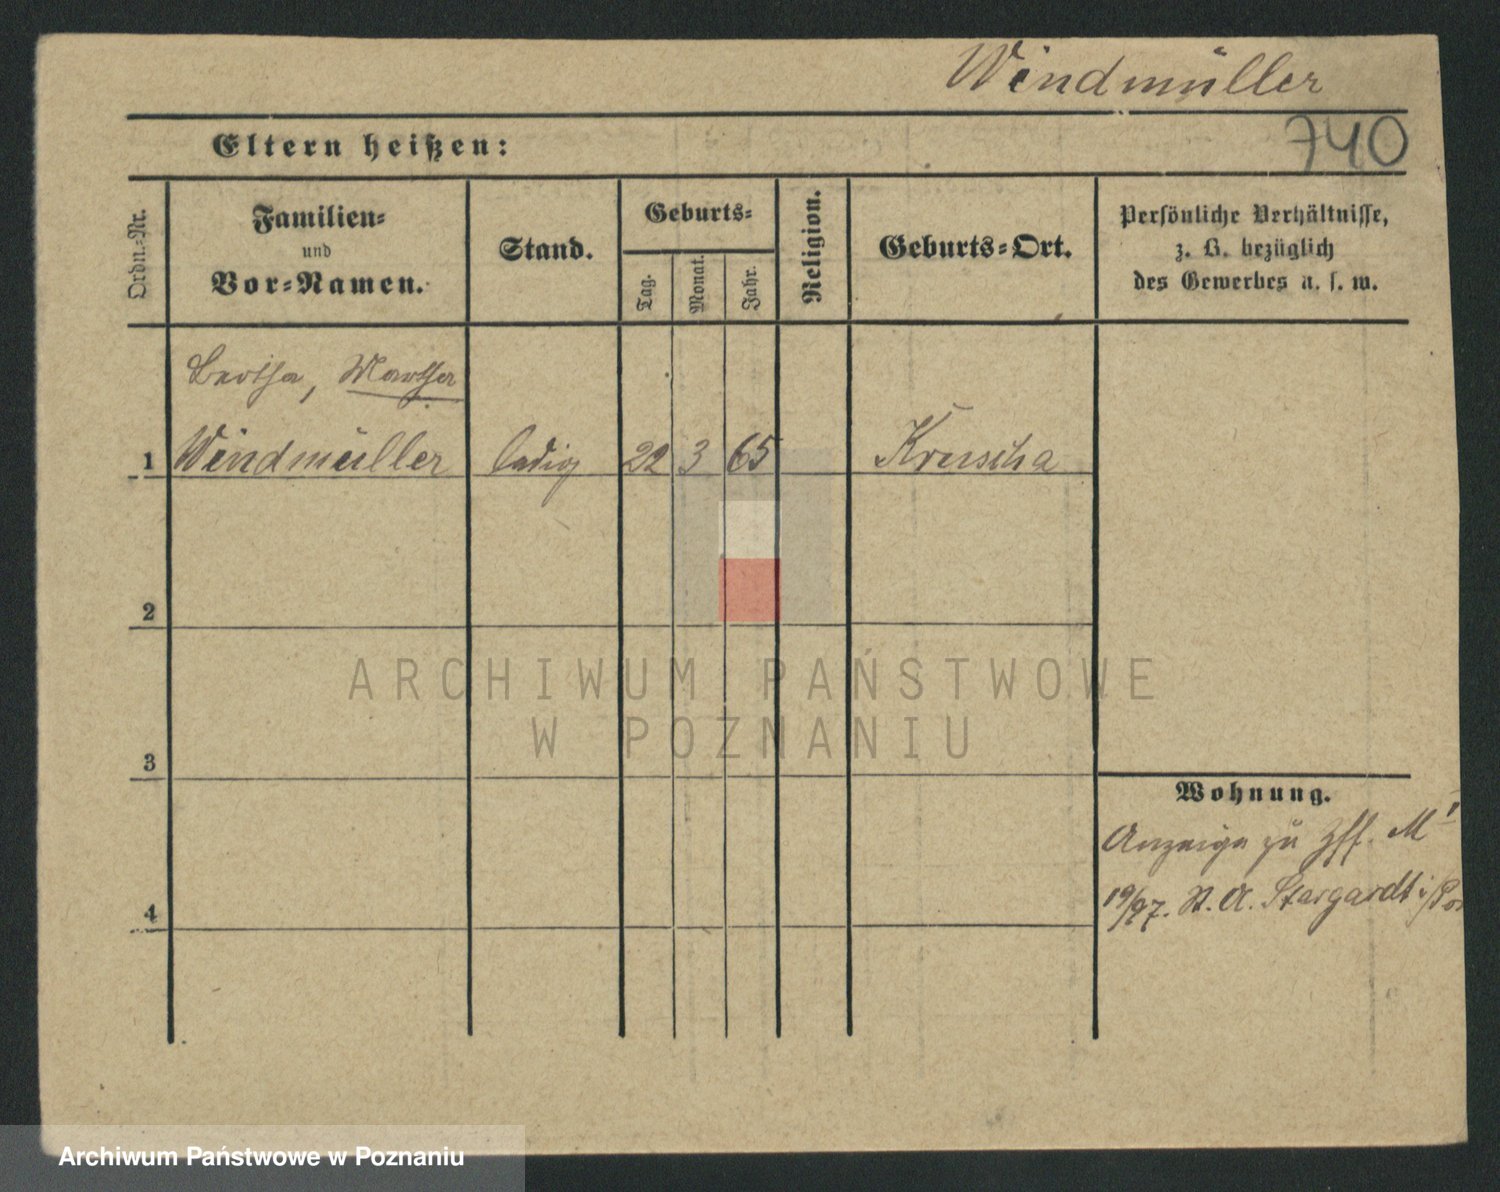 Windmüller
740
Eltern heißen:
Ordn.-Nr.
Familien-
und
Vor-Namen.
Stand.
Geburts-
Tag.
Monat.
Jahr.
Religion.
Geburts-Ort.
Persönliche Verhältnisse,
z. B. bezüglich
des Gewerbes u. s. w.
Bertha, Martha
1 Windmüller ledig 22 3 65 Kruscha
2
3
4
Wohnung.
Anzeige zu
19/97. St. A. Stargardt i/Po
ARCHIWUM PAŃSTWOWE
W POZNANIU
Archiwum Państwowe w Poznaniu